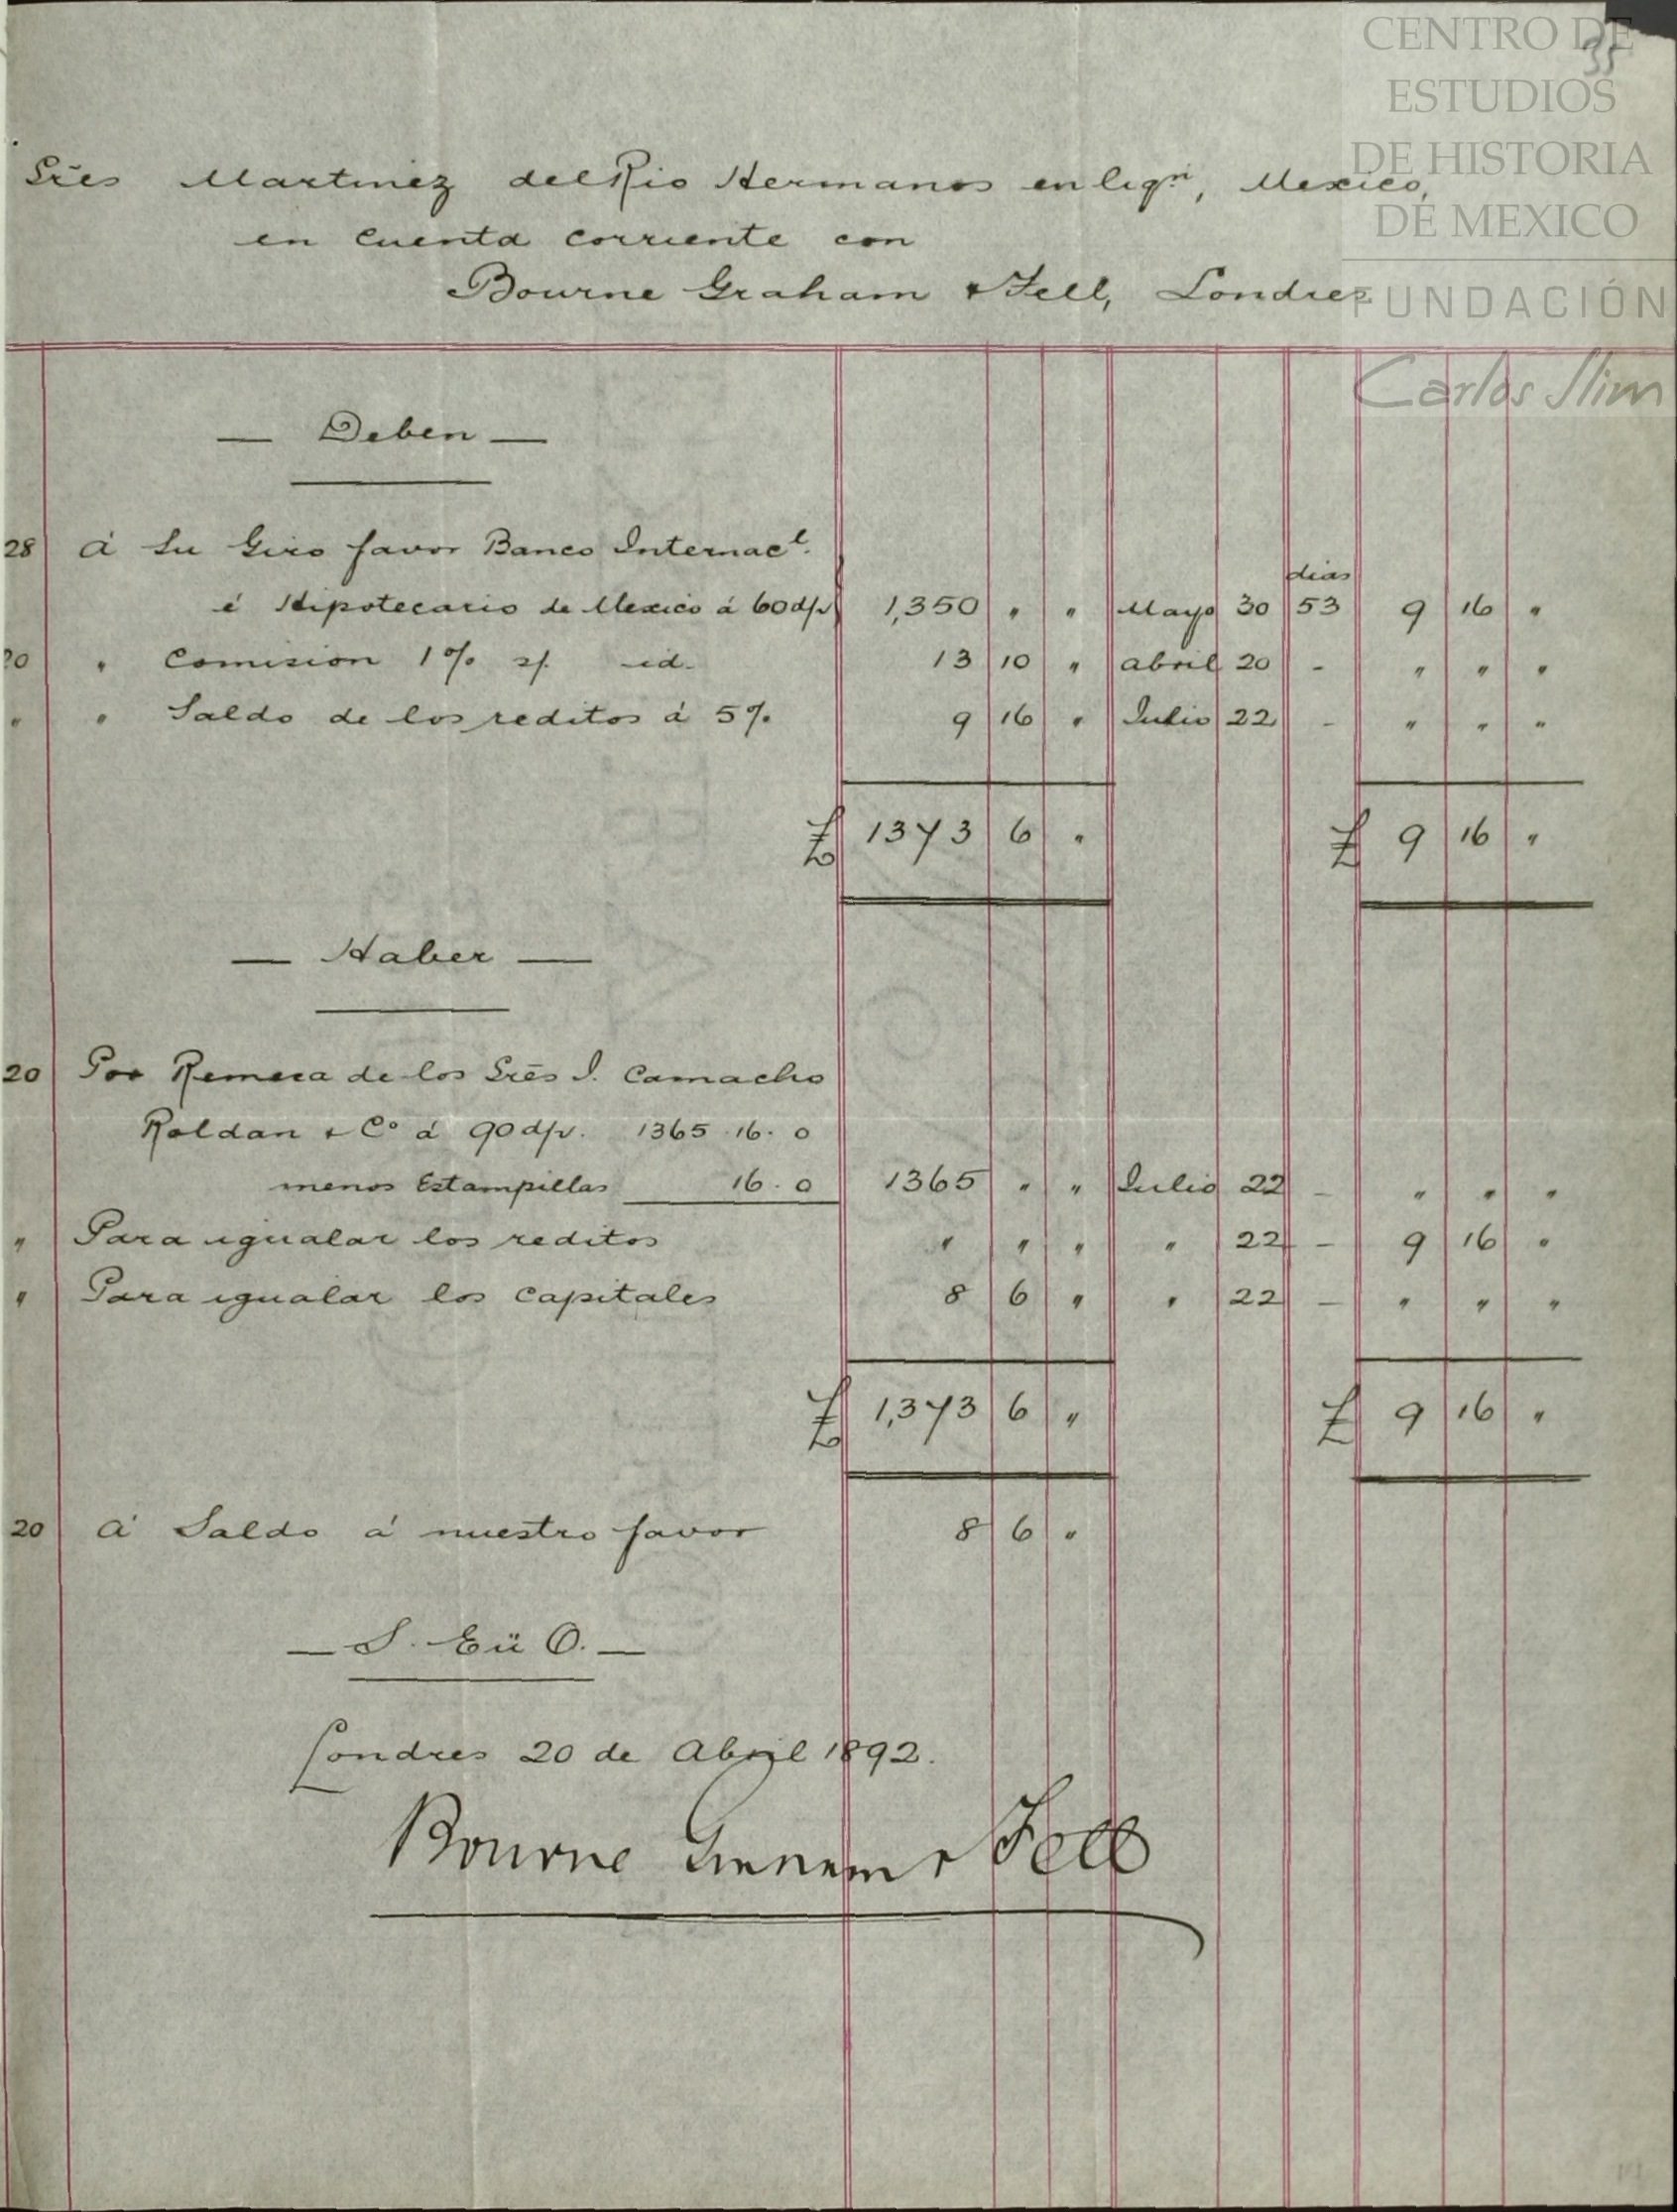 CENTRO DE
ESTUDIOS
DE HISTORIA
DE MEXICO
FUNDACIÓN
Carlos Slim
35
Srẽs Martinez del Rio Hermanos en liqn, Mexico,
en Cuenta Corriente con
Bourne Graham & Fell, Londres
— Deben —
28 Á Su Giro favor Banco Internacl.
dias
é Hipotecario de Mexico á 60 d/v 1,350 " " Mayo 30 53 9 16 "
20 " Comision 1% s/. id. 13 10 " Abril 20 - " " "
" " Saldo de los reditos á 5% 9 16 " Julio 22 - " " "
£ 1373 6 " £ 9 16 "
— Haber —
20 Por Remesa de los Srẽs J. Camacho
Roldan & Co á 90 d/v. 1365 . 16 . 0
menos Estampillas 16 . 0 1365 " " Julio 22 - " " "
" Para igualar los reditos " " " " 22 - 9 16 "
" Para igualar los Capitales 8 6 " " 22 - " " "
£ 1,373 6 " £ 9 16 "
20 Á Saldo á nuestro favor 8 6 "
— S. E ü O. —
Londres 20 de Abril 1892.
Bourne Graham & Fell